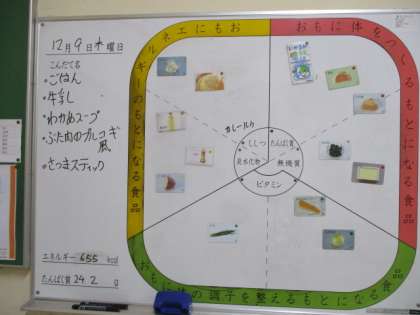 12月9日水曜日
こんだては
・ごはん
・牛乳
・わかめスープ
・ぶた肉のプルコギ風
・さつまスティック
エネルギー 655 kcal
たんぱく質 24.2 g
おもにエネルギーのもとになる食品
おもに体をつくるもとになる食品
おもに体の調子を整えるもとになる食品
カレールウ
ししつ
たんぱく質
炭水化物
無機質
ビタミン